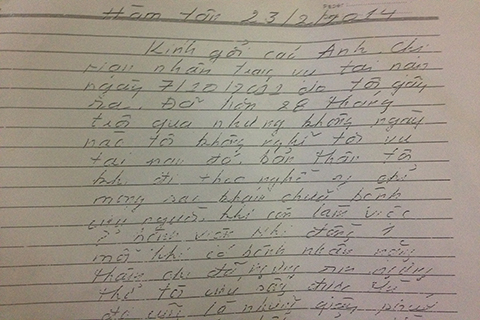 Hàm Tân 23/2/2014
Kính gởi các Anh, Chị
nạn nhân trong vụ tai nạn
ngày 7/10/2011 do tôi gây
ra. Đã hơn 28 tháng
trôi qua nhưng không ngày
nào tôi không nghĩ tới vụ
tai nạn đó, bản thân tôi
khi đi theo nghề y chỉ
mong sao khám chữa bệnh
cứu người, khi còn làm việc
ở bệnh viện Nhi đồng 1
mỗi khi có bệnh nhân nặng
thậm chí đã ngưng tim ngưng
thở tôi cứu sống được
đó cứu là những giây phút